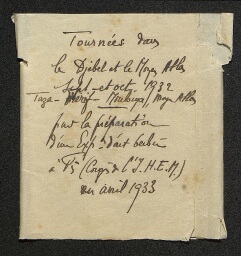 Tournées dans
le Djebel et le Moyen Atlas
Sept. et oct. 1932
Taza - Moulouya, Moyen Atlas
pour la préparation
d'une Exp. d'art berbère
à (Congrès de l'I.H.E.M.)
en avril 1933